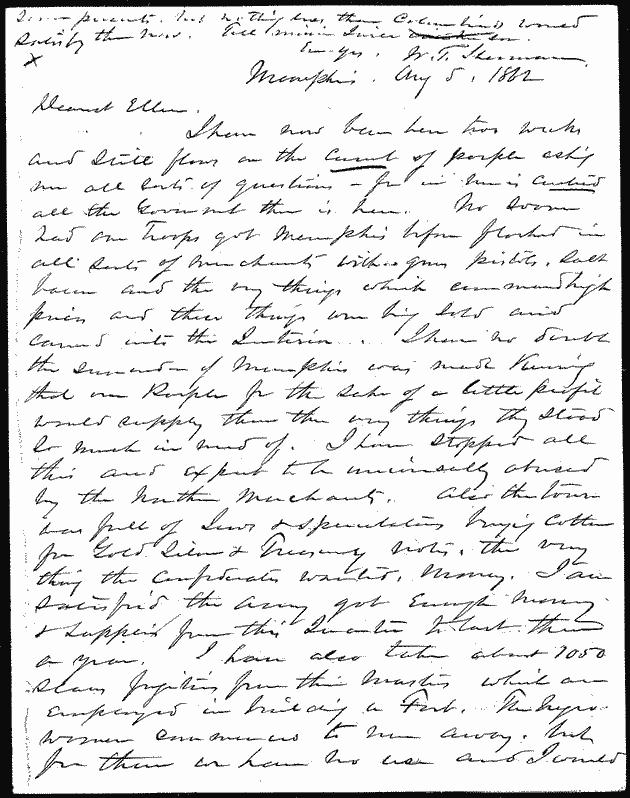 but nothing less than Columbiads would
satisfy them now.
Ever yrs, W. T. Sherman
x
Memphis, Aug 5, 1862
Dearest Ellen,
I have now been here two weeks
and still flows on the current of people asking
me all sorts of questions - for in me is centred
all the Governmt there is here. No sooner
had our Troops got Memphis before flocked in
all sorts of merchants with guns pistols, salt
bacon and the very things which command high
prices and these things were being sold and
carried into the Interior ... I have no doubt
the surrender of Memphis was made knowing
that our People for the sake of a little profit
would supply them the very things they stood
so much in need of. I have stopped all
this and expect to be universally abused
by the Northern merchants. Also the town
was full of Jews & speculators buying Cotton
for Gold, Silver & Treasury notes, the very
thing the Confederates wanted, money. I am
satisfied the army got enough money
& supplies from this Quarter to last them
a year. I have also taken about 1050
slaves fugitives from their masters which are
employed in building a Fort. The Negro
women commenced to run away, but
for them we have no use and I would